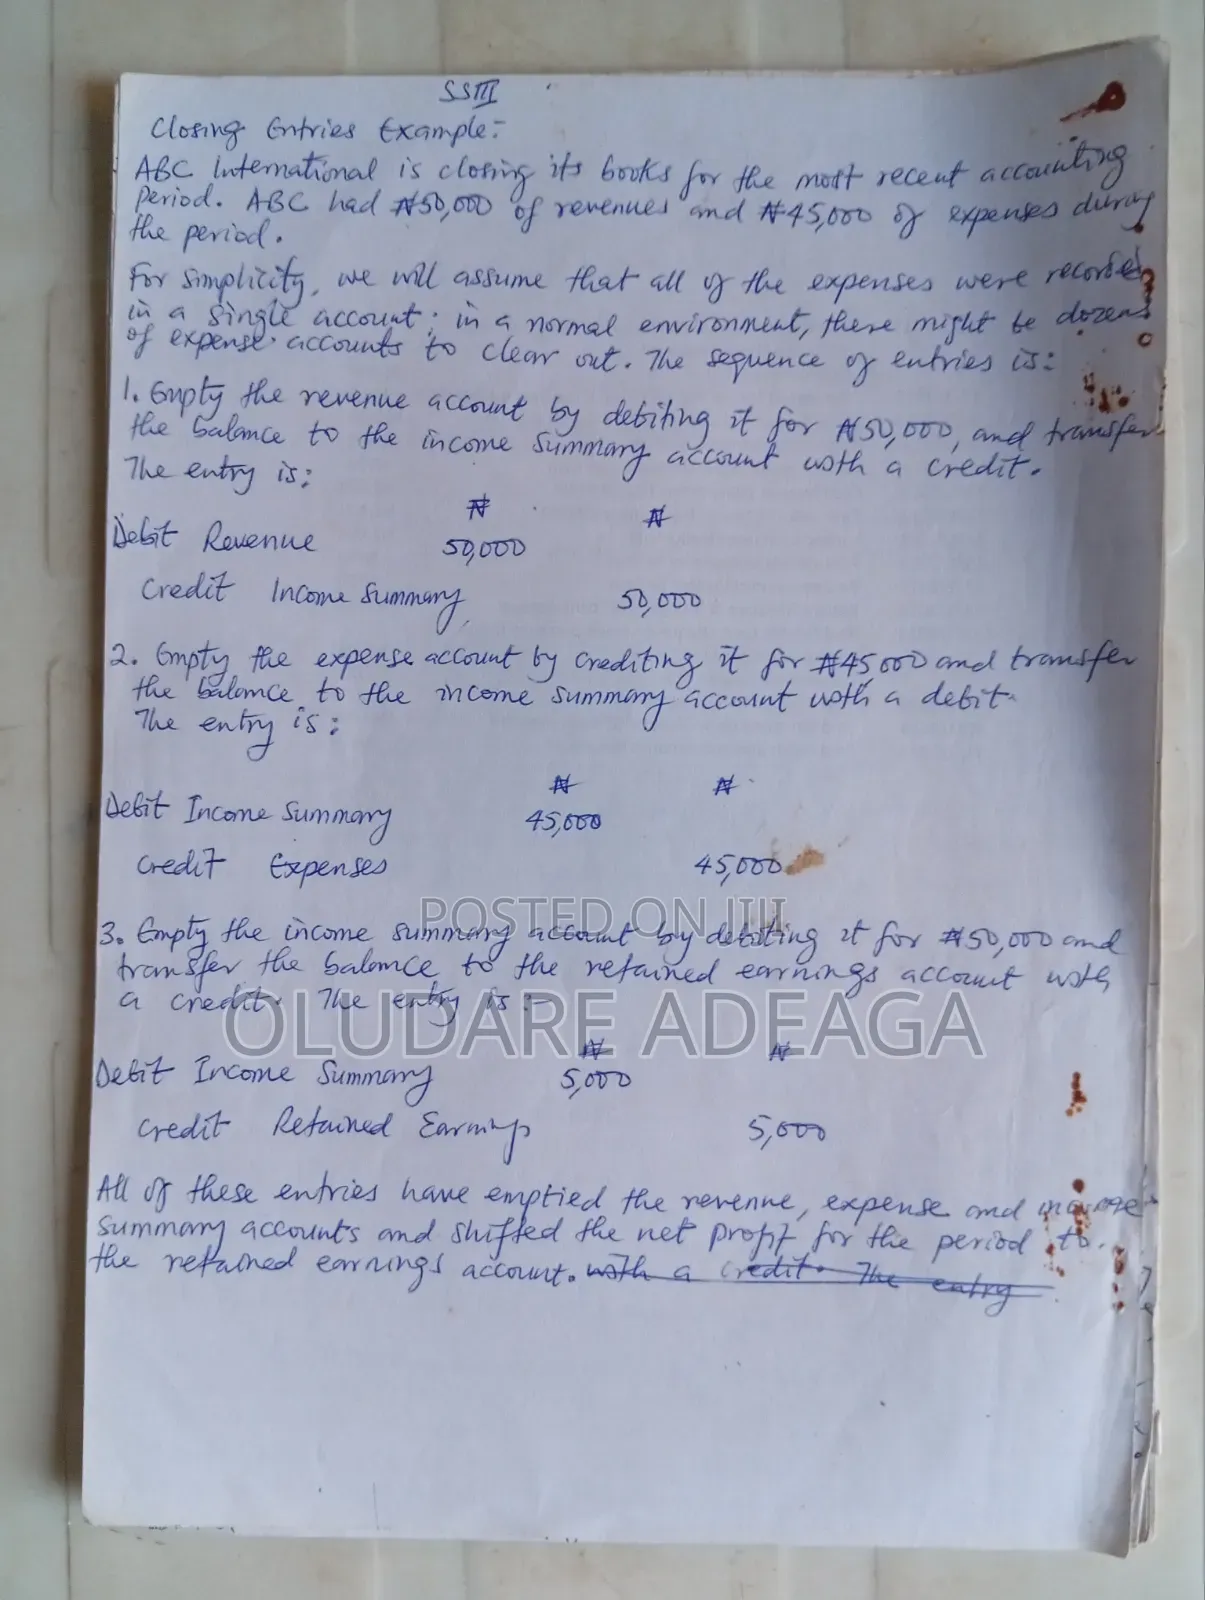 SSIII
Closing Entries Example:-
ABC International is closing its books for the most recent accounting
period. ABC had ₦50,000 of revenues and ₦45,000 of expenses during
the period.
For simplicity, we will assume that all of the expenses were recorded
in a single account; in a normal environment, there might be dozens
of expense accounts to clear out. The sequence of entries is:
1. Empty the revenue account by debiting it for ₦50,000, and transfer
the balance to the income summary account with a credit.
The entry is:
₦ ₦
Debit Revenue 50,000
Credit Income Summary 50,000
2. Empty the expense account by crediting it for ₦45,000 and transfer
the balance to the income summary account with a debit.
The entry is:
₦ ₦
Debit Income Summary 45,000
Credit Expenses 45,000
POSTED ON JIJI
3. Empty the income summary account by debiting it for ₦50,000 and
transfer the balance to the retained earnings account with
a credit. The entry is:-
OLUDARE ADEAGA
₦ ₦
Debit Income Summary 5,000
Credit Retained Earnings 5,000
All of these entries have emptied the revenue, expense and income
summary accounts and shifted the net profit for the period to
the retained earnings account. with a credit. The entry